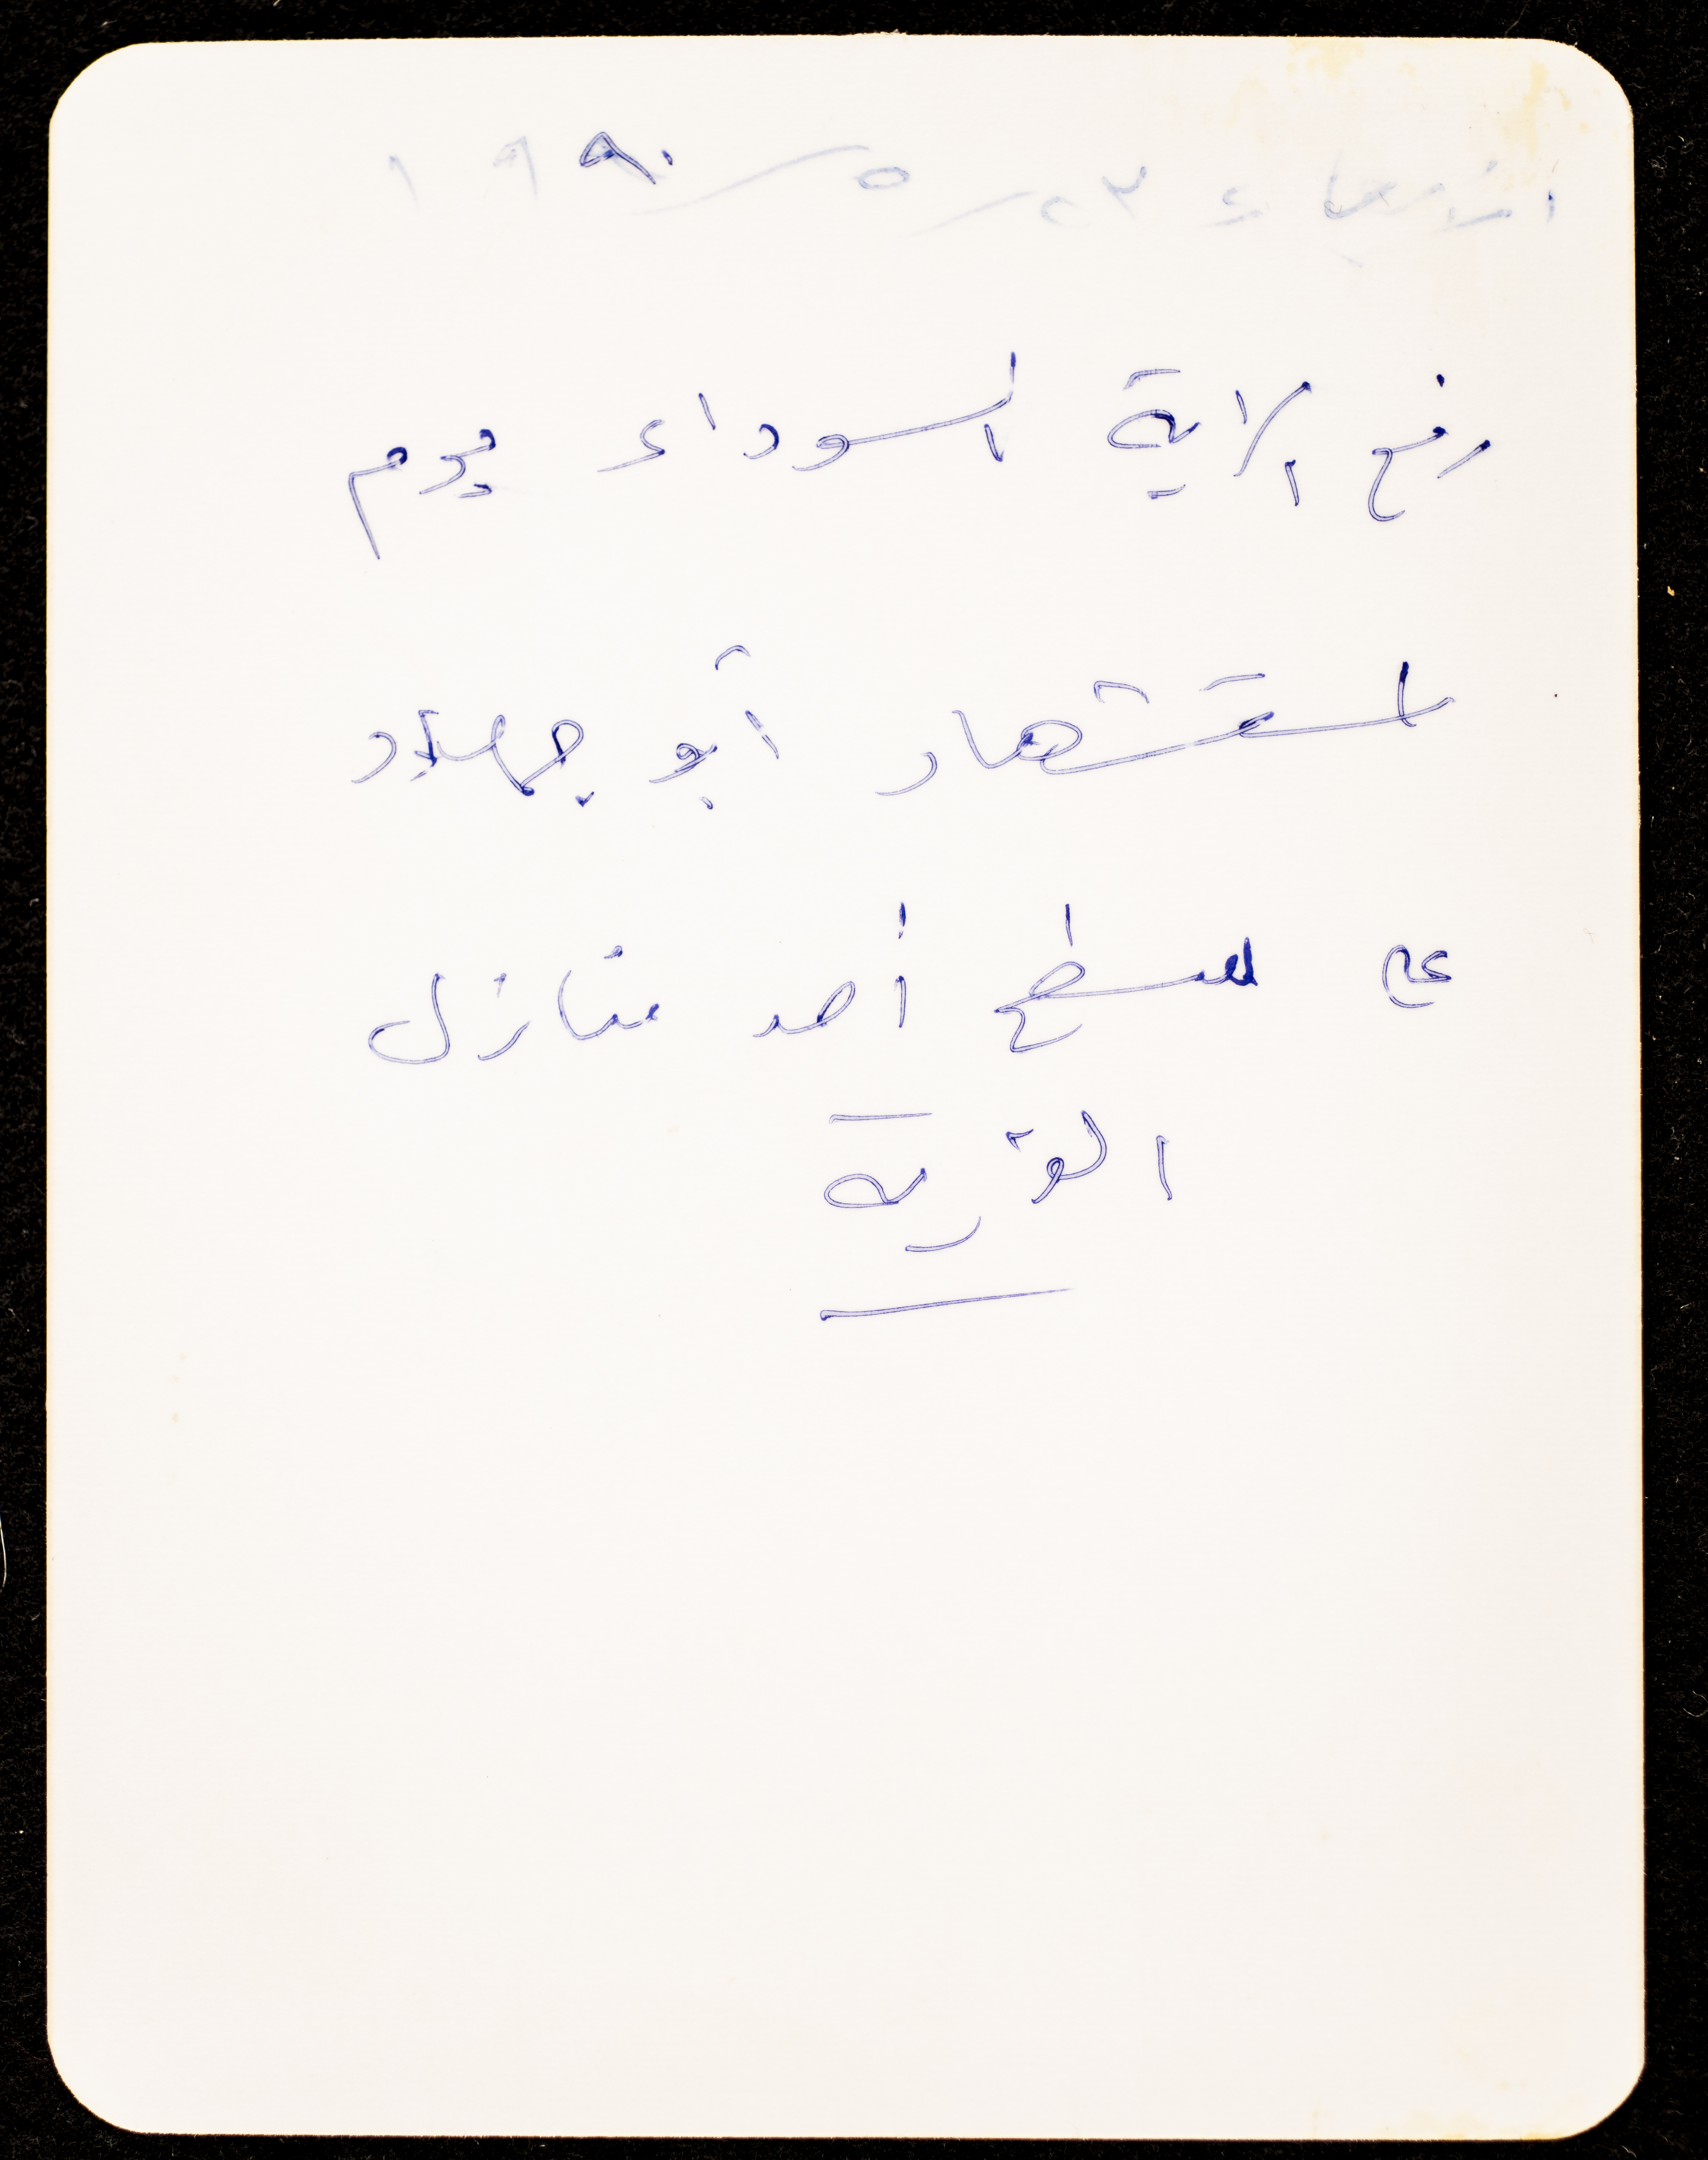 الأربعاء ٢٣/٥/١٩٩٠
رفع الراية السوداء يوم
استشهاد أبو جهاد
على سطح أحد منازل
القرية